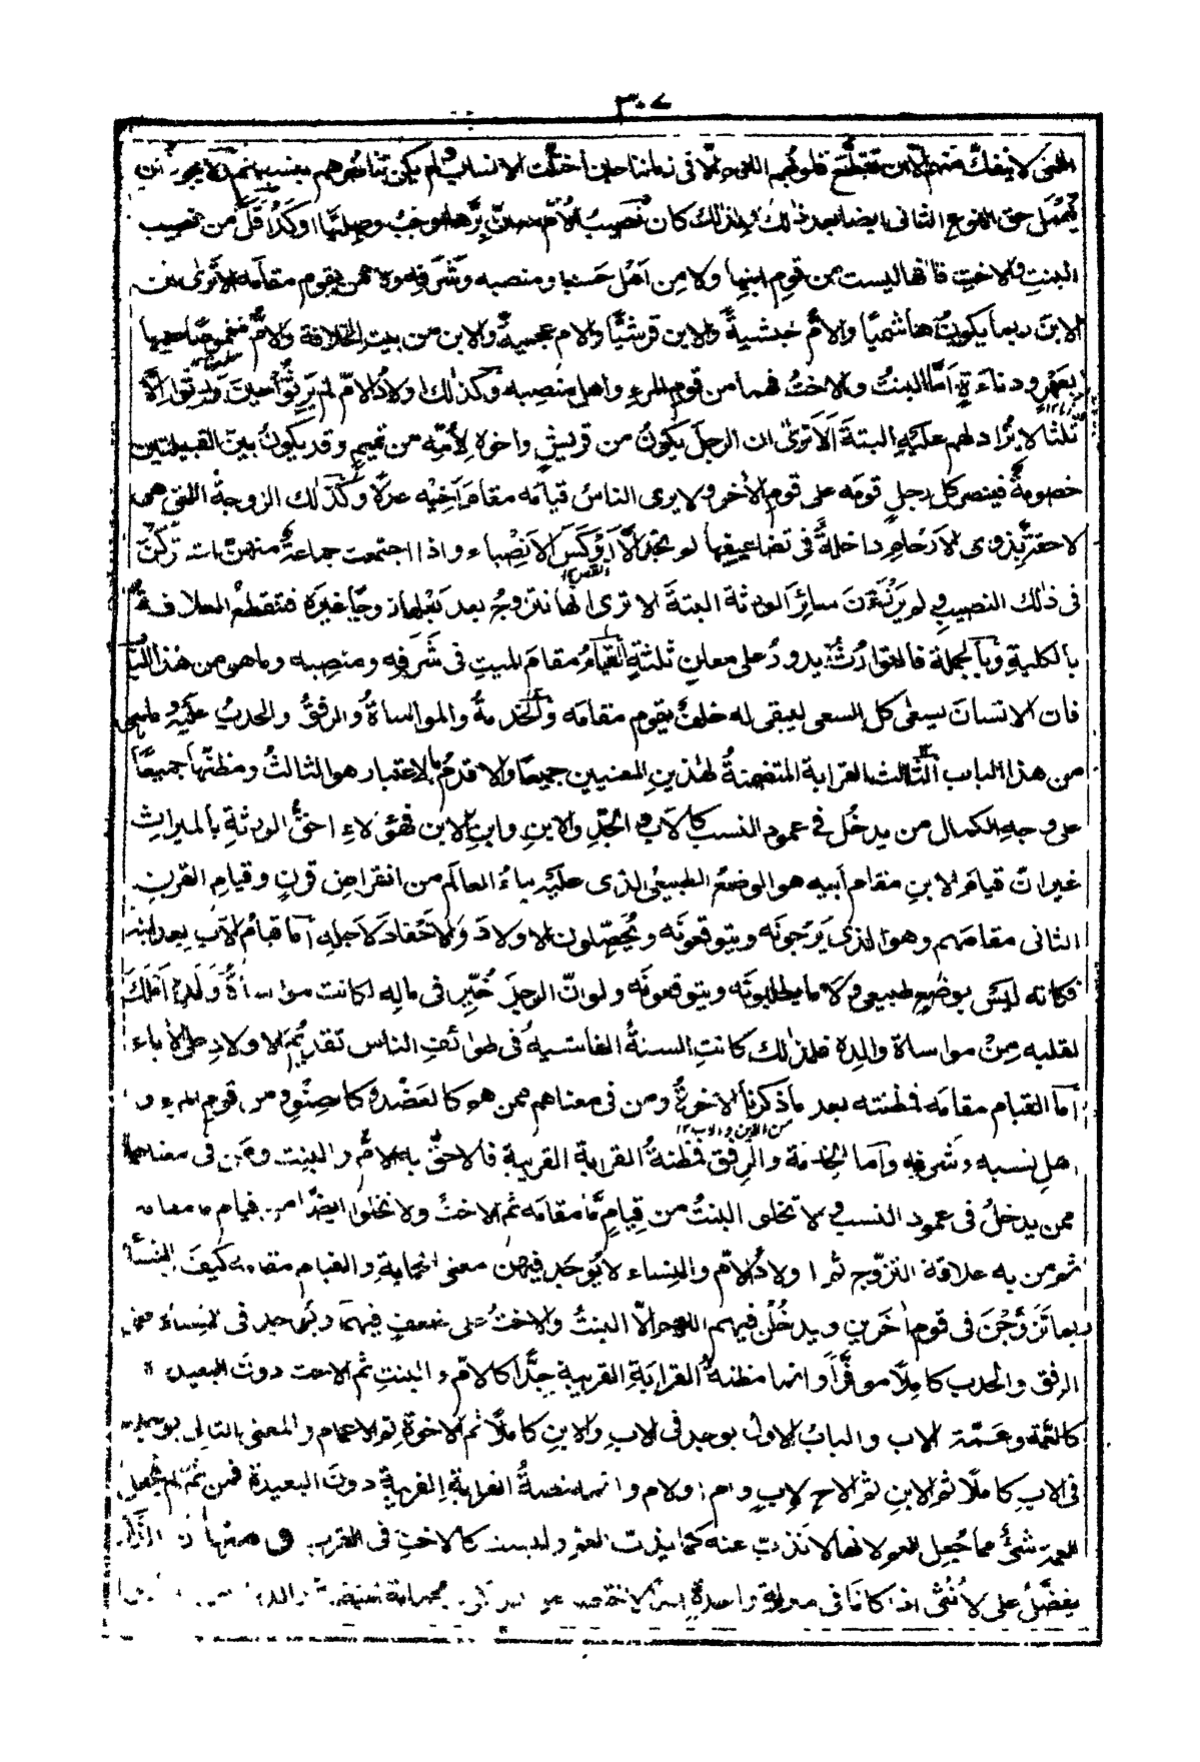 ٣٠٧
لا ينفك منهم الا بن تتقطع قلوبهم اللهم الا فى زماننا حين اختلت الانساب ولم يكن تناصرهم بنسبهم
يهمل حق النوع الثانى ايضا بعد ذلك ولذلك كان نصيب الام مع ان برها اوجب وصلتها اوكد اقل من نصيب
البنت والاخت فانها ليست من قوم ابنها ولا من اهل حسبه ومنصبه وشرفه ولا ممن يقوم مقامه الا ترى ان
الابن ربما يكون هاشميًا والام حبشية والابن قرشيًا والام عجمية والابن من بيت الخلافة والام مغموصًا عليها
بعهر ودناءة اما البنت والاخت فهما من قوم المرء واهل منصبه وكذلك اولاد الام لم يرثوا حين ورثوا الا
ثلثا لا يزاد لهم عليه البتة الا ترى ان الرجل يكون من قريش واخوه لامه من تميم وقد يكون بين القبيلتين
خصومة فينصر كل رجل قومه على قوم الآخر ولا يرى الناس قيامه مقام اخيه عدلا وكذلك الزوجة التى هى
لاحقة بذوى الارحام داخلة فى تضاعيفها لم تجد الا اوكس الانصباء واذا اجتمعت جماعة منهن اشتركن
فى ذلك النصيب ولم يرزأن سائر الورثة البتة الا ترى انها تتزوج بعد بعلها زوجًا غيره فتنقطع العلاقة
بالكلية وبالجملة فالتوارث يدور على معان ثلثة القيام مقام الميت فى شرفه ومنصبه وما هو من هذا الباب
فان الانسان يسعى كل السعى ليبقى له خلف يقوم مقامه والخدمة والمواساة والرفق والحدب عليه وما هى
من هذا الباب الثالث القرابة المتضمنة لهذين المعنيين جميعا والاقدم بالاعتبار هو الثالث ومظنتها جميعًا
على وجه الكمال من يدخل فى عمود النسب كالاب والجد والابن وابن الابن فهؤلاء احق الورثة بالميراث
غير ان قيام الابن مقام ابيه هو الوضع الطبيعى الذى عليه بناء العالم من انقراض قرن وقيام القرن
الثانى مقامهم وهو الذى يرجونه ويتوقعونه ويحصلون الاولاد والاحفاد لاجله اما قيام الاب بعد ابنه
فكانه ليس بوضع طبيعى ولا ما يطلبونه ويتوقعونه ولو ان الرجل خير فى ماله لكانت مواساة ولده املك
لقلبه من مواساة والده فلذلك كانت السنة الفاشية فى طوائف الناس تقديم الاولاد على الآباء
اما القيام مقامه فمظنته بعد ما ذكرنا الاخوة ومن فى معناهم ممن هو كالعضد وكالصنو ومن قوم المرء و
اهل نسبه وشرفه واما الخدمة والرفق فمظنة القرابة القريبة فالاحق به الام والبنت ومن فى معناهما
ممن يدخل فى عمود النسب ولا تخلو البنت من قيام ما مقامه ثم الاخت ولا تخلو ايضًا من قيام ما مقامه
ثم من به علاقة التزوج ثم اولاد الام والنساء لا يوجد فيهن معنى الحماية والقيام مقامه كيف والنساء
ربما تزوجن فى قوم آخرين ويدخلن فيهم اللهم الا البنت والاخت على ضعف فيهما ويوجد فى النساء معنى
الرفق والحدب كاملًا موفرًا وانما مظنة القرابة القريبة جدًا كالام والبنت ثم الاخت دون البعيدة
كالعمة وعمة الاب والباب الاول يوجد فى الاب والابن كاملًا ثم الاخوة ثم الاعمام والمعنى الثانى يوجد
فى الاب كاملًا ثم الابن ثم الاخ لاب وام او لام وانما مظنة القرابة القريبة دون البعيدة فمن ثم لم يجعل
للعمة شئ مما جعل للعم لانها لا تذب عنه كما يذب العم وليست كالاخت فى القرب
يفضل على الانثى اذا كانا فى منزلة واحدة